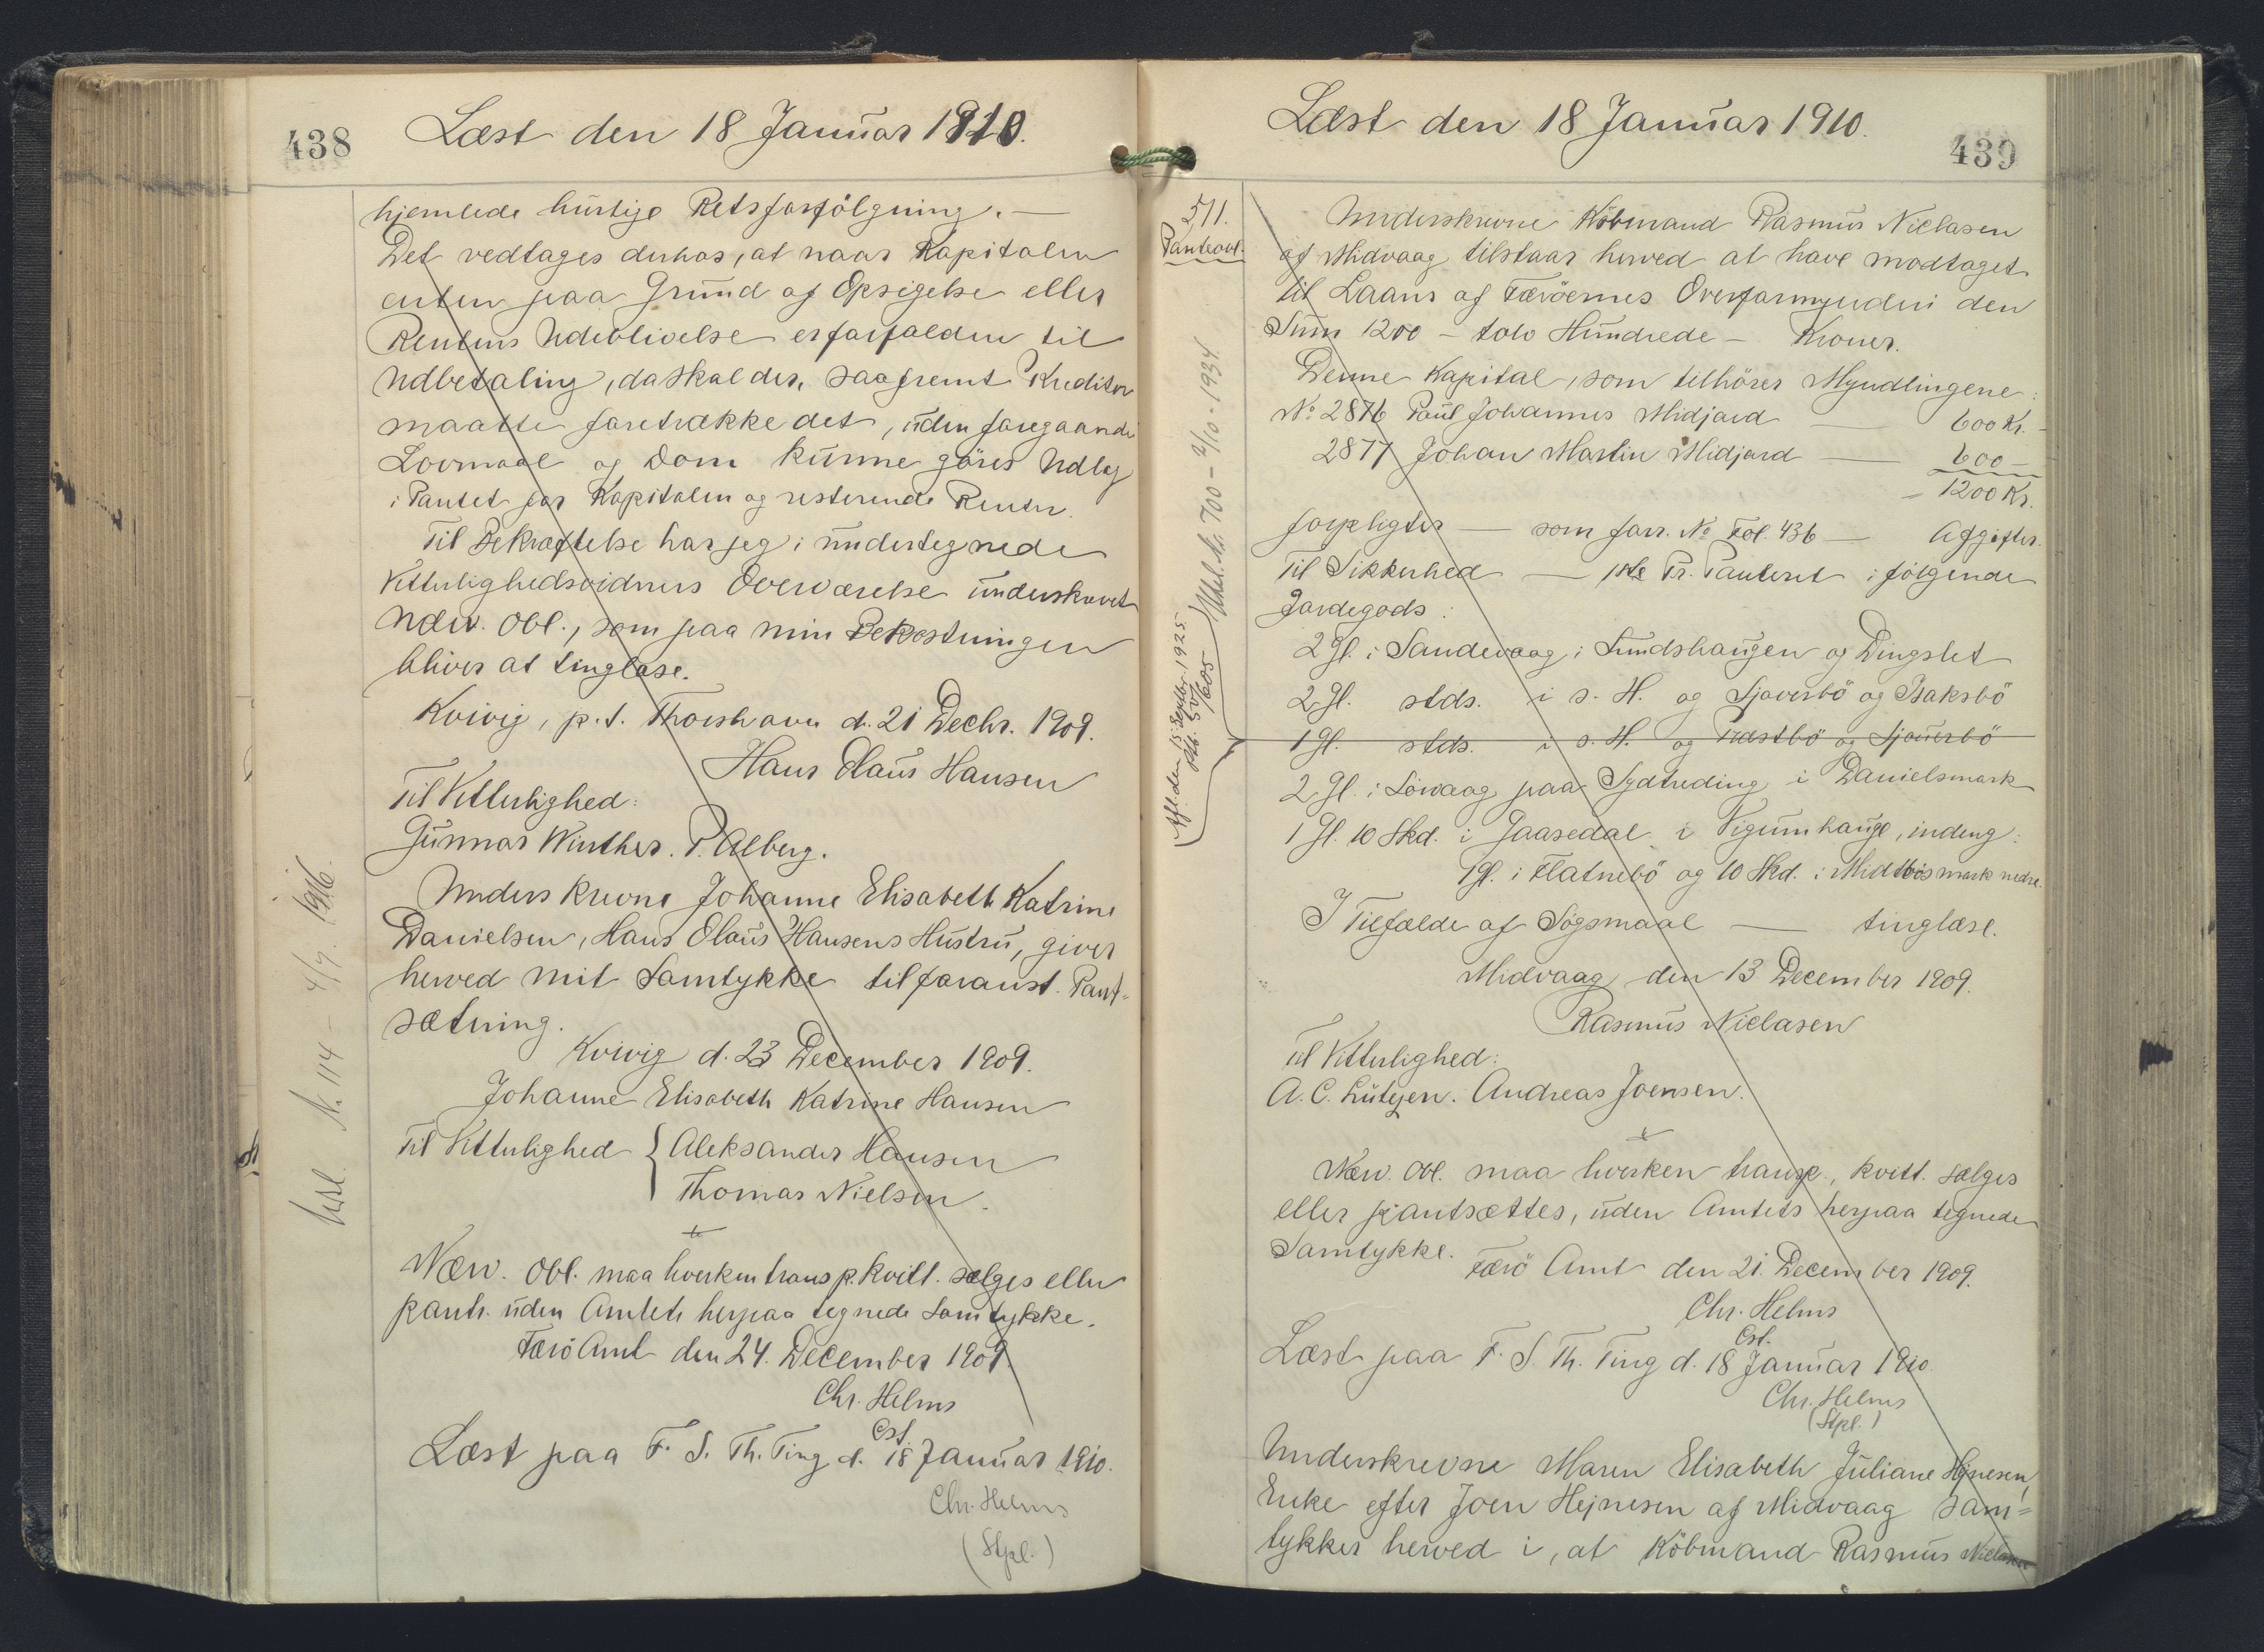 438
Læst den 18 Januar 1910.
hjemlede hurtige Retsforfölgning. —
Det vedtages derhos, at naar Kapitalen
enten paa Grund af Opsigelse eller
Rentens Udeblivelse er forfalden til
Udbetaling, da skal der, saafremt Kreditor
maatte foretrække det, uden foregaaende
Lovmaal og Dom kunne göres Udlæg
i Pantet for Kapitalen og resterende Renter.
Til Bekræftelse har jeg i undertegnede
Vitterlighedsvidners Overværelse underskrevet
nærv. Obl., som paa min Bekostningen
bliver at tinglæse.
Kvivig, p.t. Thorshavn d. 21 Decbr. 1909.
Hans Olaus Hansen
Til Vitterlighed:
Gunnar Winther. P. Alberg.
Underskrevne Johanne Elisabeth Katrine
Danielsen, Hans Olaus Hansens Hustru, giver
herved mit Samtykke til foranst. Pant=
sætning.
Kvivig d. 23 December 1909.
Johanne Elisabeth Katrine Hansen
Til Vitterlighed { Aleksander Hansen
Thomas Nielsen.
Nærv. Obl. maa hverken transp. kvitt. sælges eller
pants. uden Amtets herpaa tegnede Samtykke.
Færö Amt den 24. December 1909.
Chr. Helms
Cst.
Læst paa F. S. Th. Ting d. 18 Januar 1910.
Chr. Helms
(Stpl.)
Udsl. N. 114 - 4/7. 1916.
Læst den 18 Januar 1910.
439
511.
Panteobl.
Underskrevne Köbmand Rasmus Niclasen
af Midvaag tilstaar herved at have modtaget
til Laans af Færöernes Overformynderi den
Sum 1200 - tolv Hundrede - Kroner.
Denne Kapital, som tilhörer Myndlingene:
No 2876 Poul Johannes Midjord — 600 Kr. -
2877 Johan Martin Midjord — 600 -
- 1200 Kr.
forpligter — som forr. No Fol. 436 — Afgifter.
Til Sikkerhed — 1ste Pr. Panteret i fölgende
Jordegods:
2 Gl. i Sandevaag i Lundshaugen og Dingslet
2 Gl. stds. i s. H. og Sjoverbö og Baksbö
1 Gl. stds. i s. H. og Præstbö og Sjoverbö
2 Gl. i Sörvaag paa Sydtreding i Danielsmark
1 Gl. 10 Skd. i Gaasedal i Vigumhauge, indeng:
1 Gl. i Flatnebö og 10 Skd. i Midtbösmark nedre.
I Tilfælde af Sögsmaal — tinglæse.
Midvaag den 13 December 1909.
Rasmus Niclasen
Til Vitterlighed:
A. C. Lützen. Andreas Joensen.
Nærv. Obl. maa hverken transp., kvitt. sælges
eller pantsættes, uden Amtets herpaa tegnede
Samtykke.
Færö Amt den 21. December 1909.
Chr. Helms
Cst.
Læst paa F. S. Th. Ting d. 18 Januar 1910.
Chr. Helms
(Stpl.)
Underskrevne Maren Elisabeth Juliane Hejnesen,
Enke efter Joen Hejnesen af Midvaag sam=
tykker herved i, at Köbmand Rasmus Niclasen
Afl. den 15 Septbr. 1925
Udsl. N. 700 - 2/10 - 1934